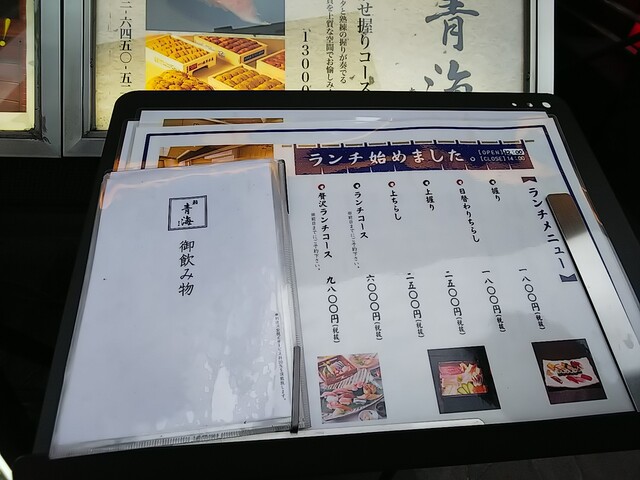 青海
せ握りコース
タと熟練の握りが奏でる
を上質な空間でお愉しみ
13000
ランチ始めました。
[OPEN]
[CLOSE]14:00
ランチメニュー
握り 一八〇〇円(税抜)
日替わりちらし 一八〇〇円(税抜)
上握り 二五〇〇円(税抜)
上ちらし 二五〇〇円(税抜)
ランチコース 六〇〇〇円(税抜)
※前日までにご予約下さい。
贅沢ランチコース 九八〇〇円(税抜)
※前日までにご予約下さい。
青海
御飲み物